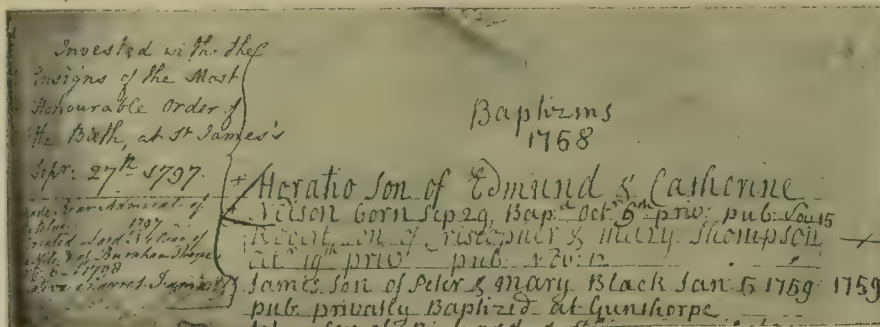 Invested with the
Ensigns of the Most
Honourable Order of
the Bath, at St James's
Sepr. 27th 1797.
Rear Admiral of
the Blue 1797
Created Lord Nelson of
the Nile & of Burnham Thorpe
1798
Baptizms
1758
+ Horatio Son of Edmund & Catherine
Nelson born Sep 29, Bapd Oct 9th priv: pub. Nov 15
Robert Son of & Mary Thompson
19th priv pub
James Son of Peter & Mary Black Jan 5 1759 1759
pub privatly Baptized at Gunthorpe